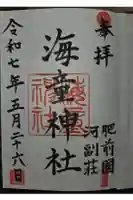 奉拝
肥前國
河副荘
海童神社
令和七年五月二十六日